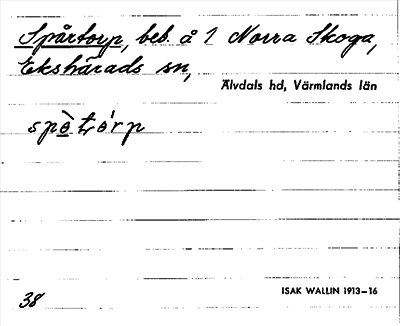 Spårtorp, beb. å 1 Norra Skoga,
Ekshärads sn,
Älvdals hd, Värmlands län
spò̱tórp
ISAK WALLIN 1913–16
38